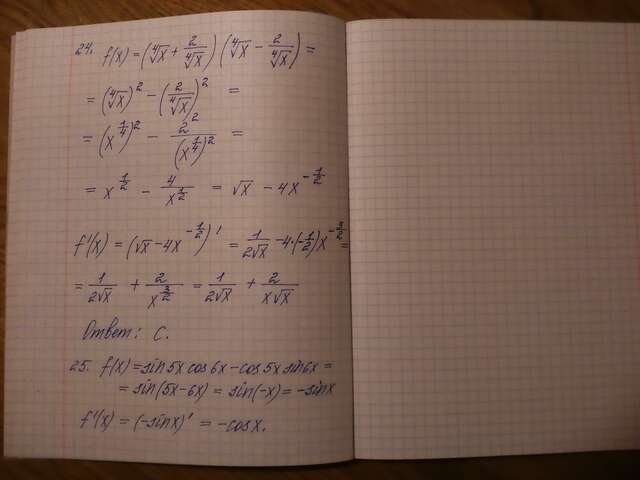 24. f(x) = (∜x + 2/∜x) (∜x − 2/∜x) =
= (∜x)² − (2/∜x)² =
= (x^(1/4))² − 2²/(x^(1/4))² =
= x^(1/2) − 4/x^(1/2) = √x − 4x^(−1/2)
f'(x) = (√x − 4x^(−1/2))' = 1/(2√x) − 4·(−1/2)x^(−3/2) =
= 1/(2√x) + 2/x^(3/2) = 1/(2√x) + 2/(x√x)
Ответ: C.
25. f(x) = sin 5x cos 6x − cos 5x sin 6x =
= sin(5x − 6x) = sin(−x) = −sin x
f'(x) = (−sin x)' = −cos x.